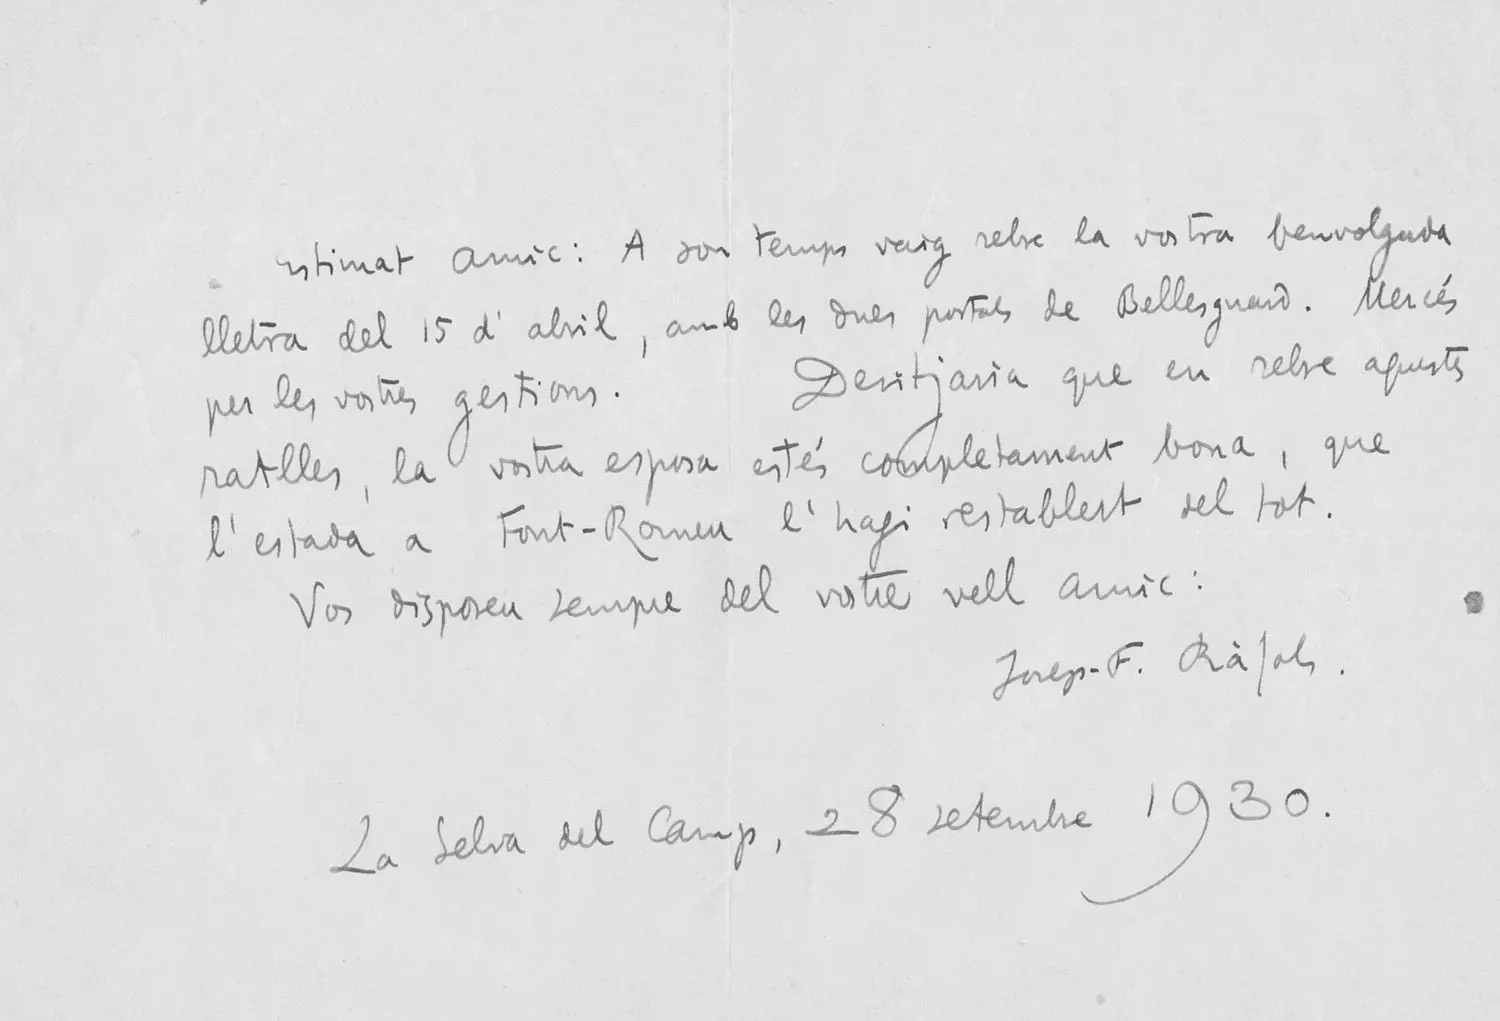 Estimat amic: A son temps vaig rebre la vostra benvolguda
lletra del 15 d'abril, amb les dues postals de Bellesguard. Mercés
per les vostres gestions. Desitjaria que en rebre aquests
ratlles, la vostra esposa estés completament bona, que
l'estada a Font-Romeu l'hagi restablert del tot.
Vos disposeu sempre del vostre vell amic:
Josep-F. Ràfols.
La Selva del Camp, 28 setembre 1930.